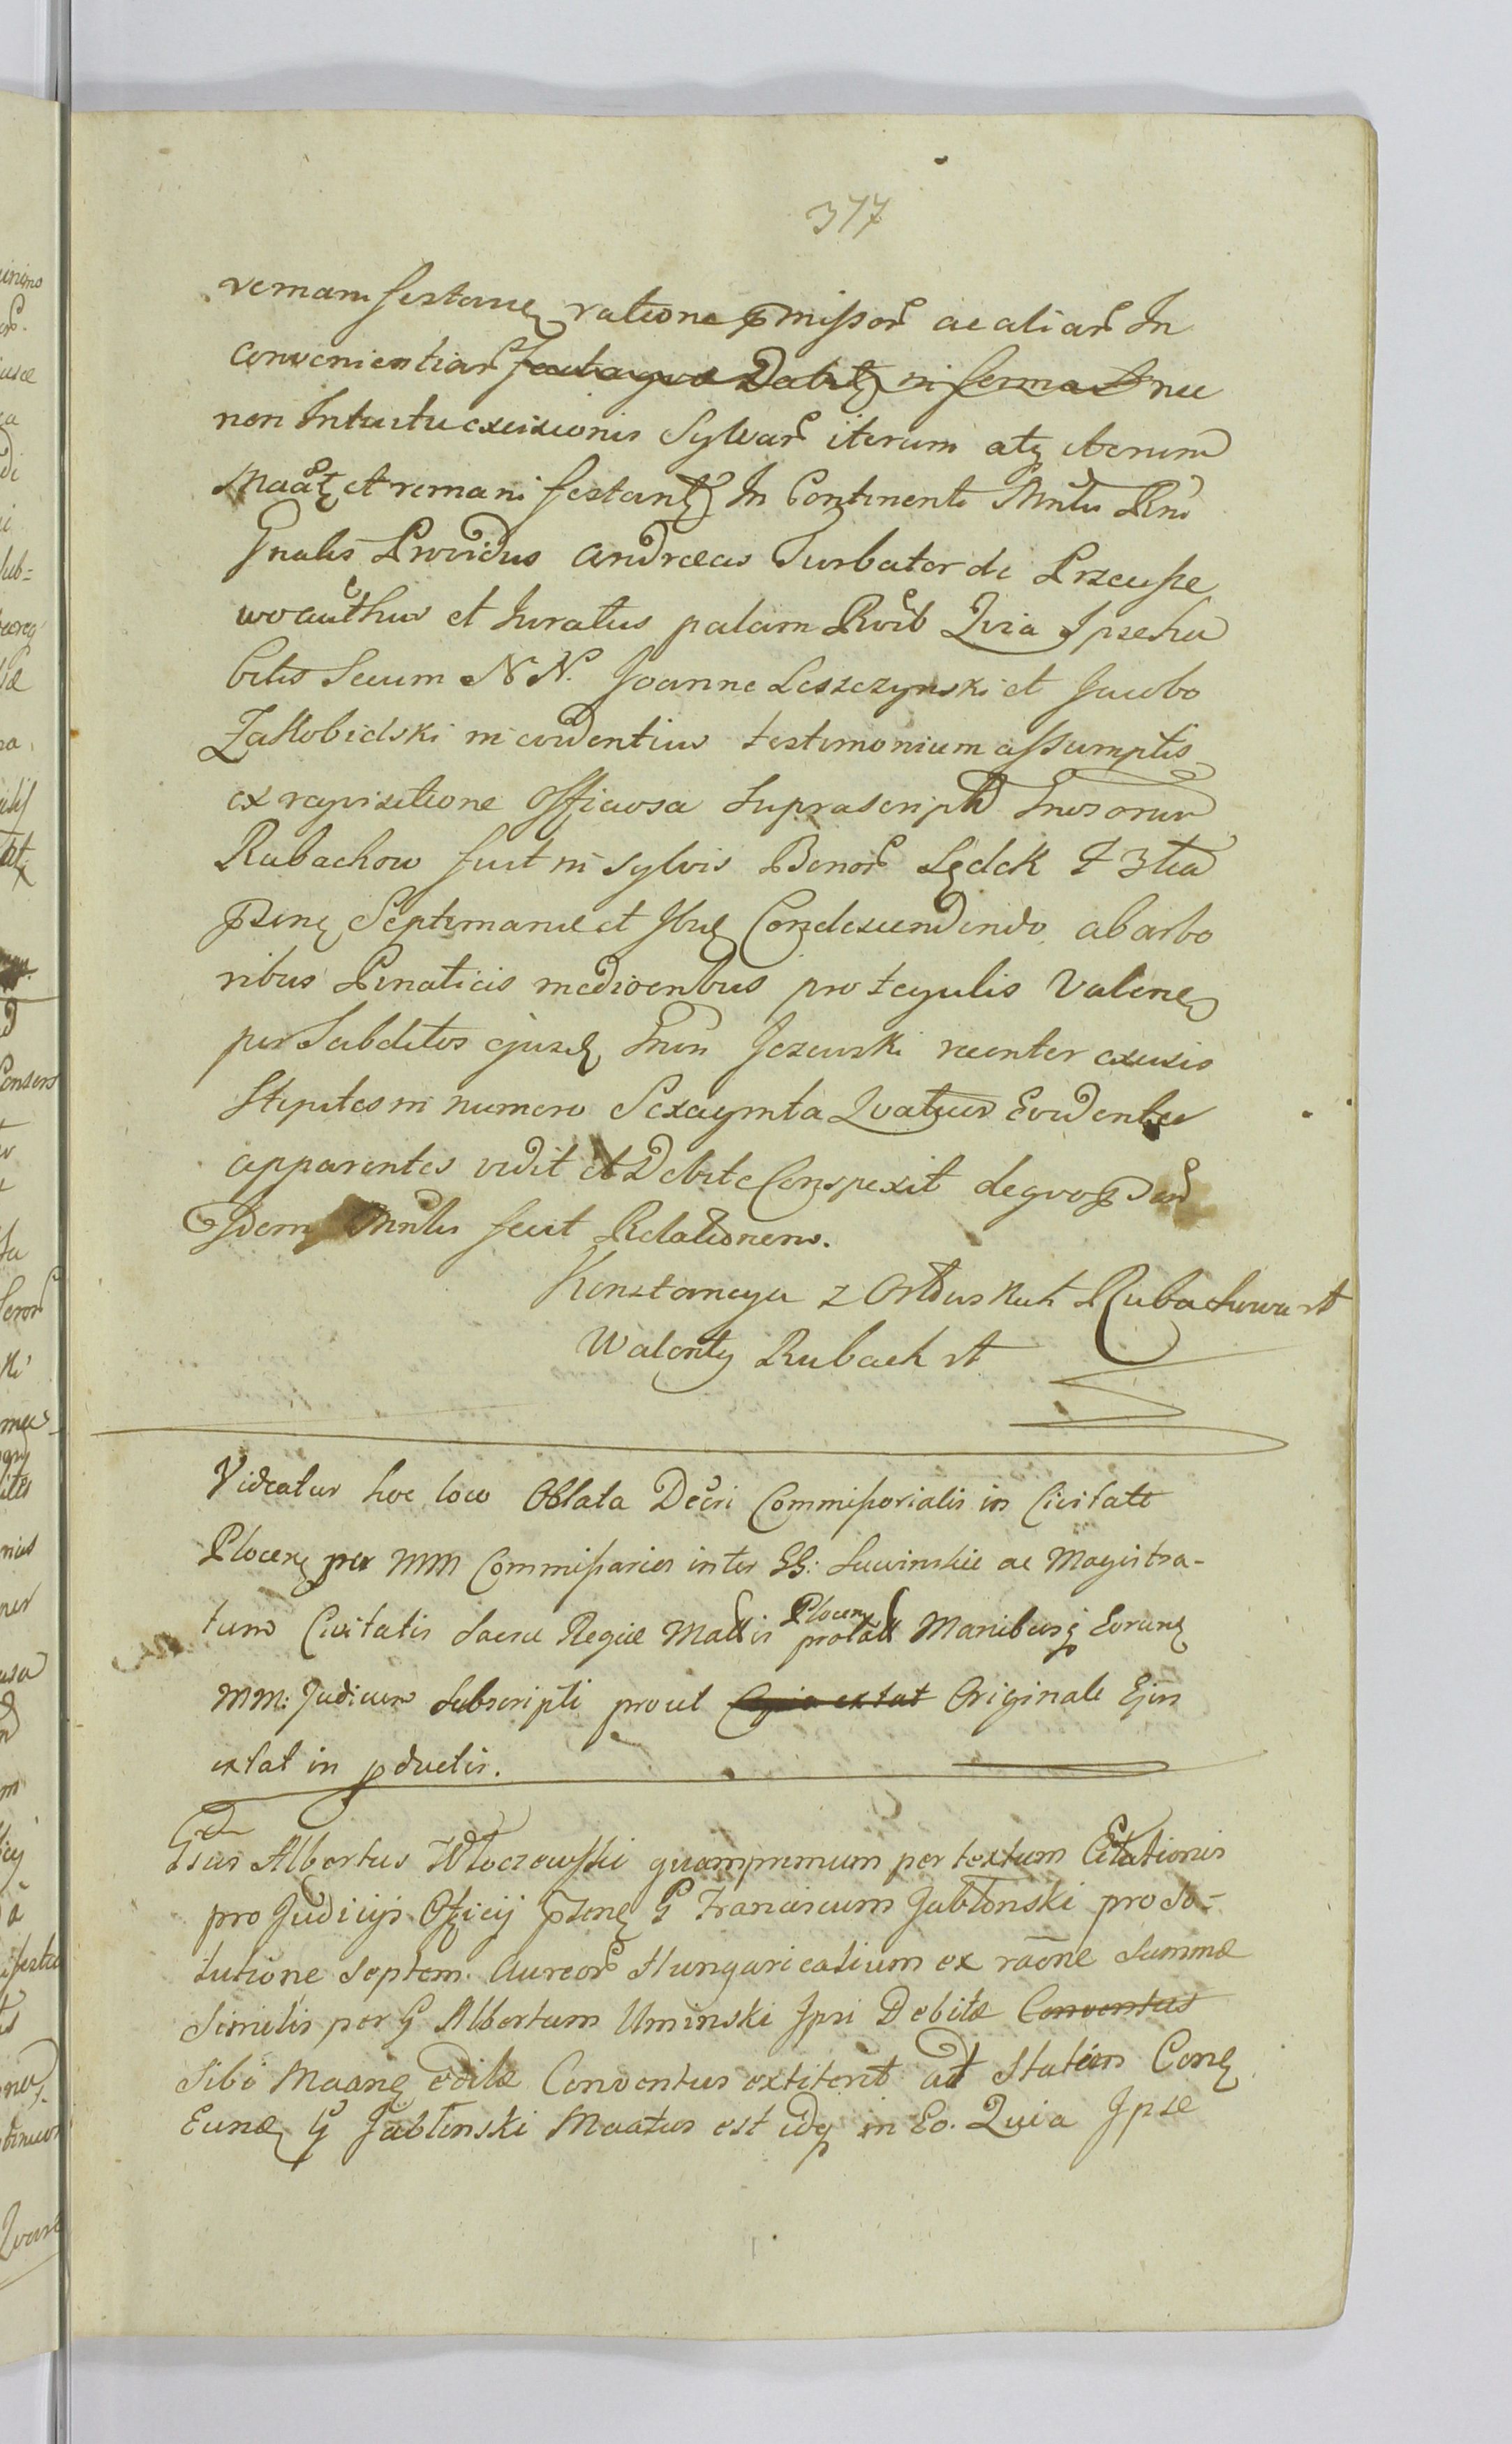 377
remanifestavę ratione pmissor ac aliar In
convenientiar nec
non Intuitu excisionis Sylvar iterum atq iterum
Maatę et remanifestantę In Continenti Mntr Rni
Gnalis Providus Andreas Turbator de Przeusze
wo authus et Juratus palam Rvit Quia Ipse ha
bitis Secum NN. Joanne Leszczynski et Jacobo
Zaktobielski in evidentius testimonium assumptis
ex requisitione Officiosa Suprascript Gnosorum
Rubachow fuit in Sylvis Bonor Lędek f 3tia
pzenę Septimanæ et Ibidę Condescendendo ab arbo
ribus Pinaticis mediocribus pro tegulis Valenę
per Subditos ejusdę Gnsi Jezewski recenter excisis
Stipites in numero Sexaginta Quatuor Evidenter
apparentes vidit et Debite Conspexit de quo
Idem Mntr fecit Relationem.
Konstancya z Ostrowskich Rubachowa rt
Walenty Rubach rt
Videatur hoc loco Oblata Decri Commissorialis in Civitate
Plocenę per MM Commissarios inter GG: Lewinskie ac Magistra-
tum Civitatis Sacræ Regiæ Mattis Plocen prolati Manibusq Eorundę
MM: Judicum Subscripti prout Copia extat Originale Ejus
extat in pductis.
Gsus Albertus Wloczewski quamprimum per textum Citationis
pro Judicijs Officij pzenę G Franciscum Jabłonski pro So-
lutione Septem Aureor Hungaricalium ex raone Summæ
Similis per G Albertum Uminski Ipsi Debitæ Conventus
Sibi Maanę editæ Conventus extiterit ad Statim Conę
Eundę G Jabłonski Maatus est idq in Eo. Quia Ipse